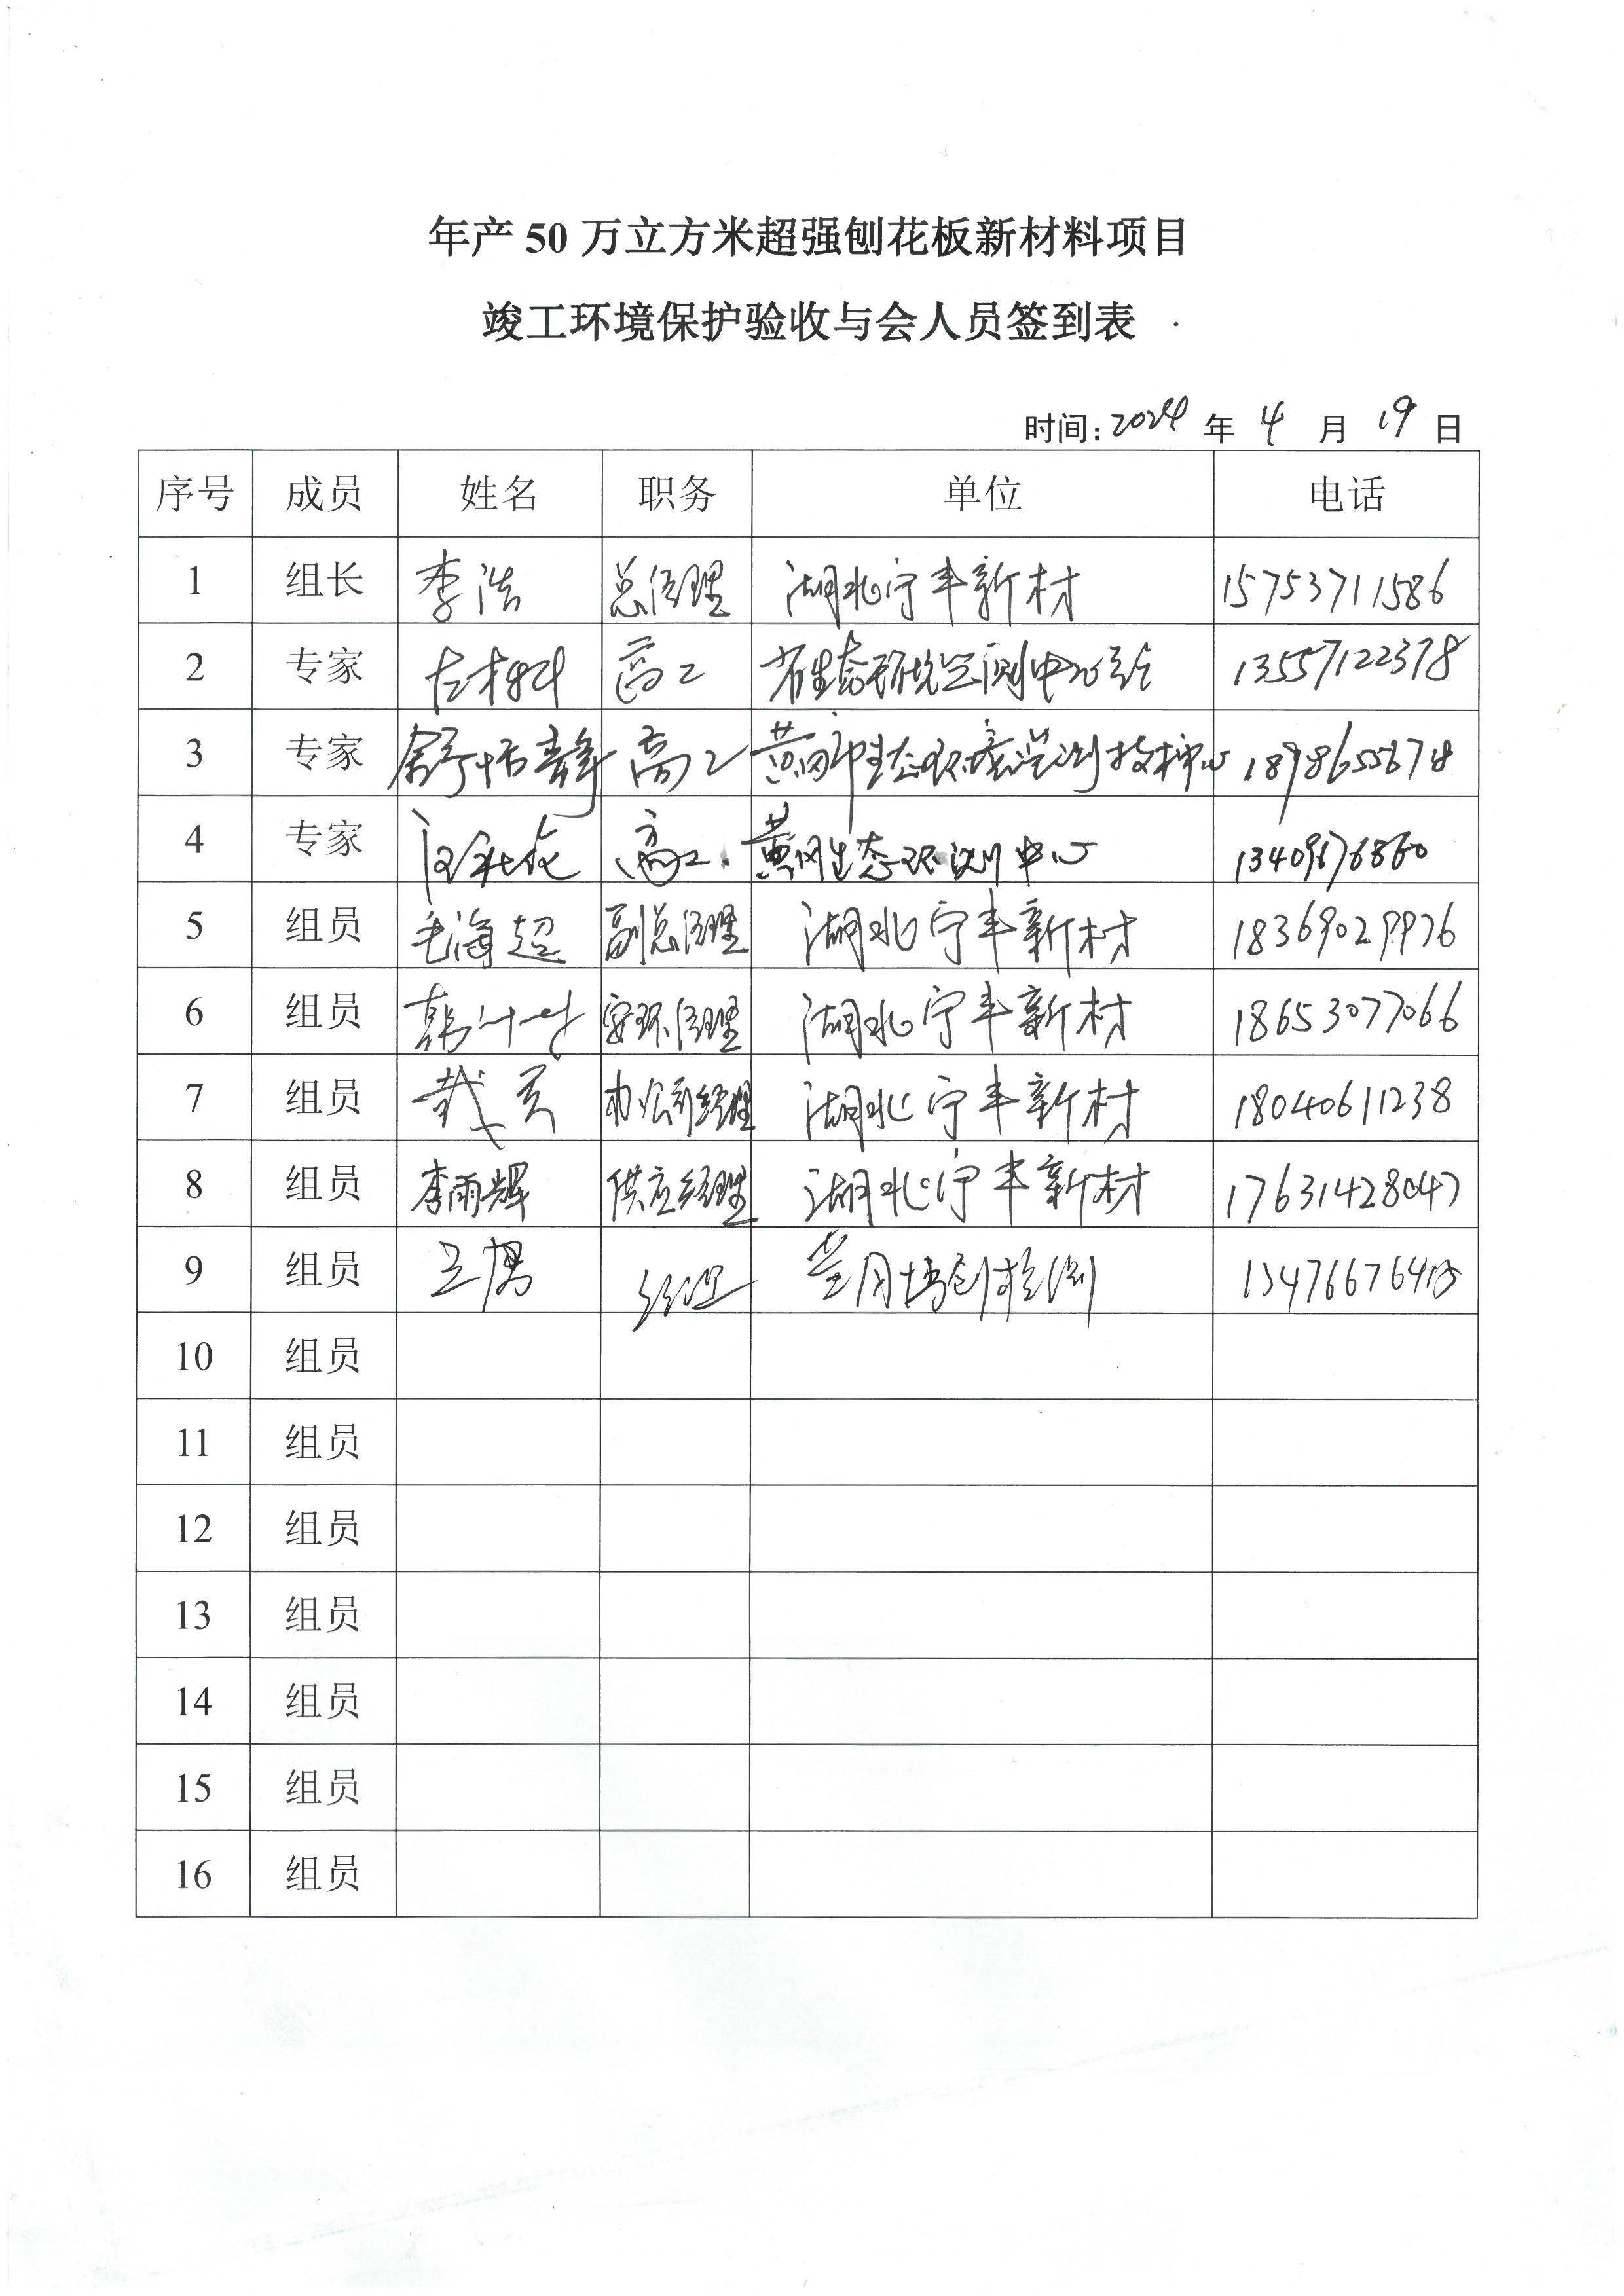 年产 50 万立方米超强刨花板新材料项目
竣工环境保护验收与会人员签到表
时间: 2024 年 4 月 19 日
序号 成员 姓名 职务 单位 电话
1 组长 李浩 总经理 湖北宁丰新材 15753711586
2 专家 高工 省生态环境监测中心站 13557122378
3 专家 舒恬静 高工 黄冈市生态环境监测技术中心
4 专家 高工 黄冈生态环测中心 13409676860
5 组员 毛海超 副总经理 湖北宁丰新材 18369029976
6 组员 韩 安环经理 湖北宁丰新材 18653077066
7 组员 办公室经理 湖北宁丰新材 18040611238
8 组员 李雨辉 供应经理 湖北宁丰新材 17631428047
9 组员 经理 检测
10 组员
11 组员
12 组员
13 组员
14 组员
15 组员
16 组员